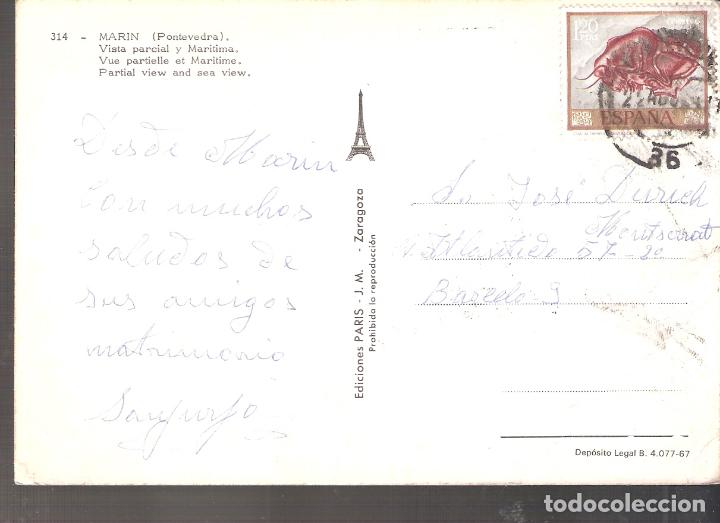 314 - MARIN (Pontevedra).
Vista parcial y Marítima.
Vue partielle et Maritime.
Partial view and sea view.
1'20
PTAS
ESPAÑA
22 AGO
36
Desde Marin
Con muchos
saludos de
sus amigos
matrimonio
Sanjurjo
Ediciones PARIS - J. M. - Zaragoza
Prohibida la reproducción
José Durich
Montserrat
Atlantida 57-2º
Depósito Legal B. 4.077-67
todocoleccion.net